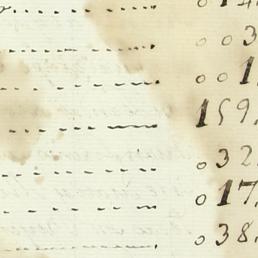 003,
001,
159,
032,
017,
038,